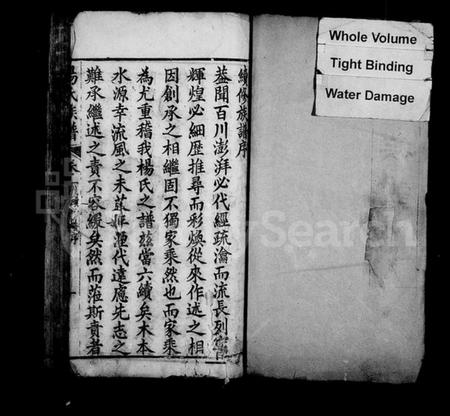 續修族譜序
蓋聞百川澎湃必代經疏瀹而流長列宿
輝煌必細歷推尋而彩煥從來作述之相
因創承之相繼固不獨家乘然也而家乘
為尤重稽我楊氏之譜茲當六續矣木本
水源幸流風之未
運代遠處先志之
難承繼述之責不容緩矣然而蒞斯責者
氏族譜 卷
Whole Volume
Tight Binding
Water Damage
Search